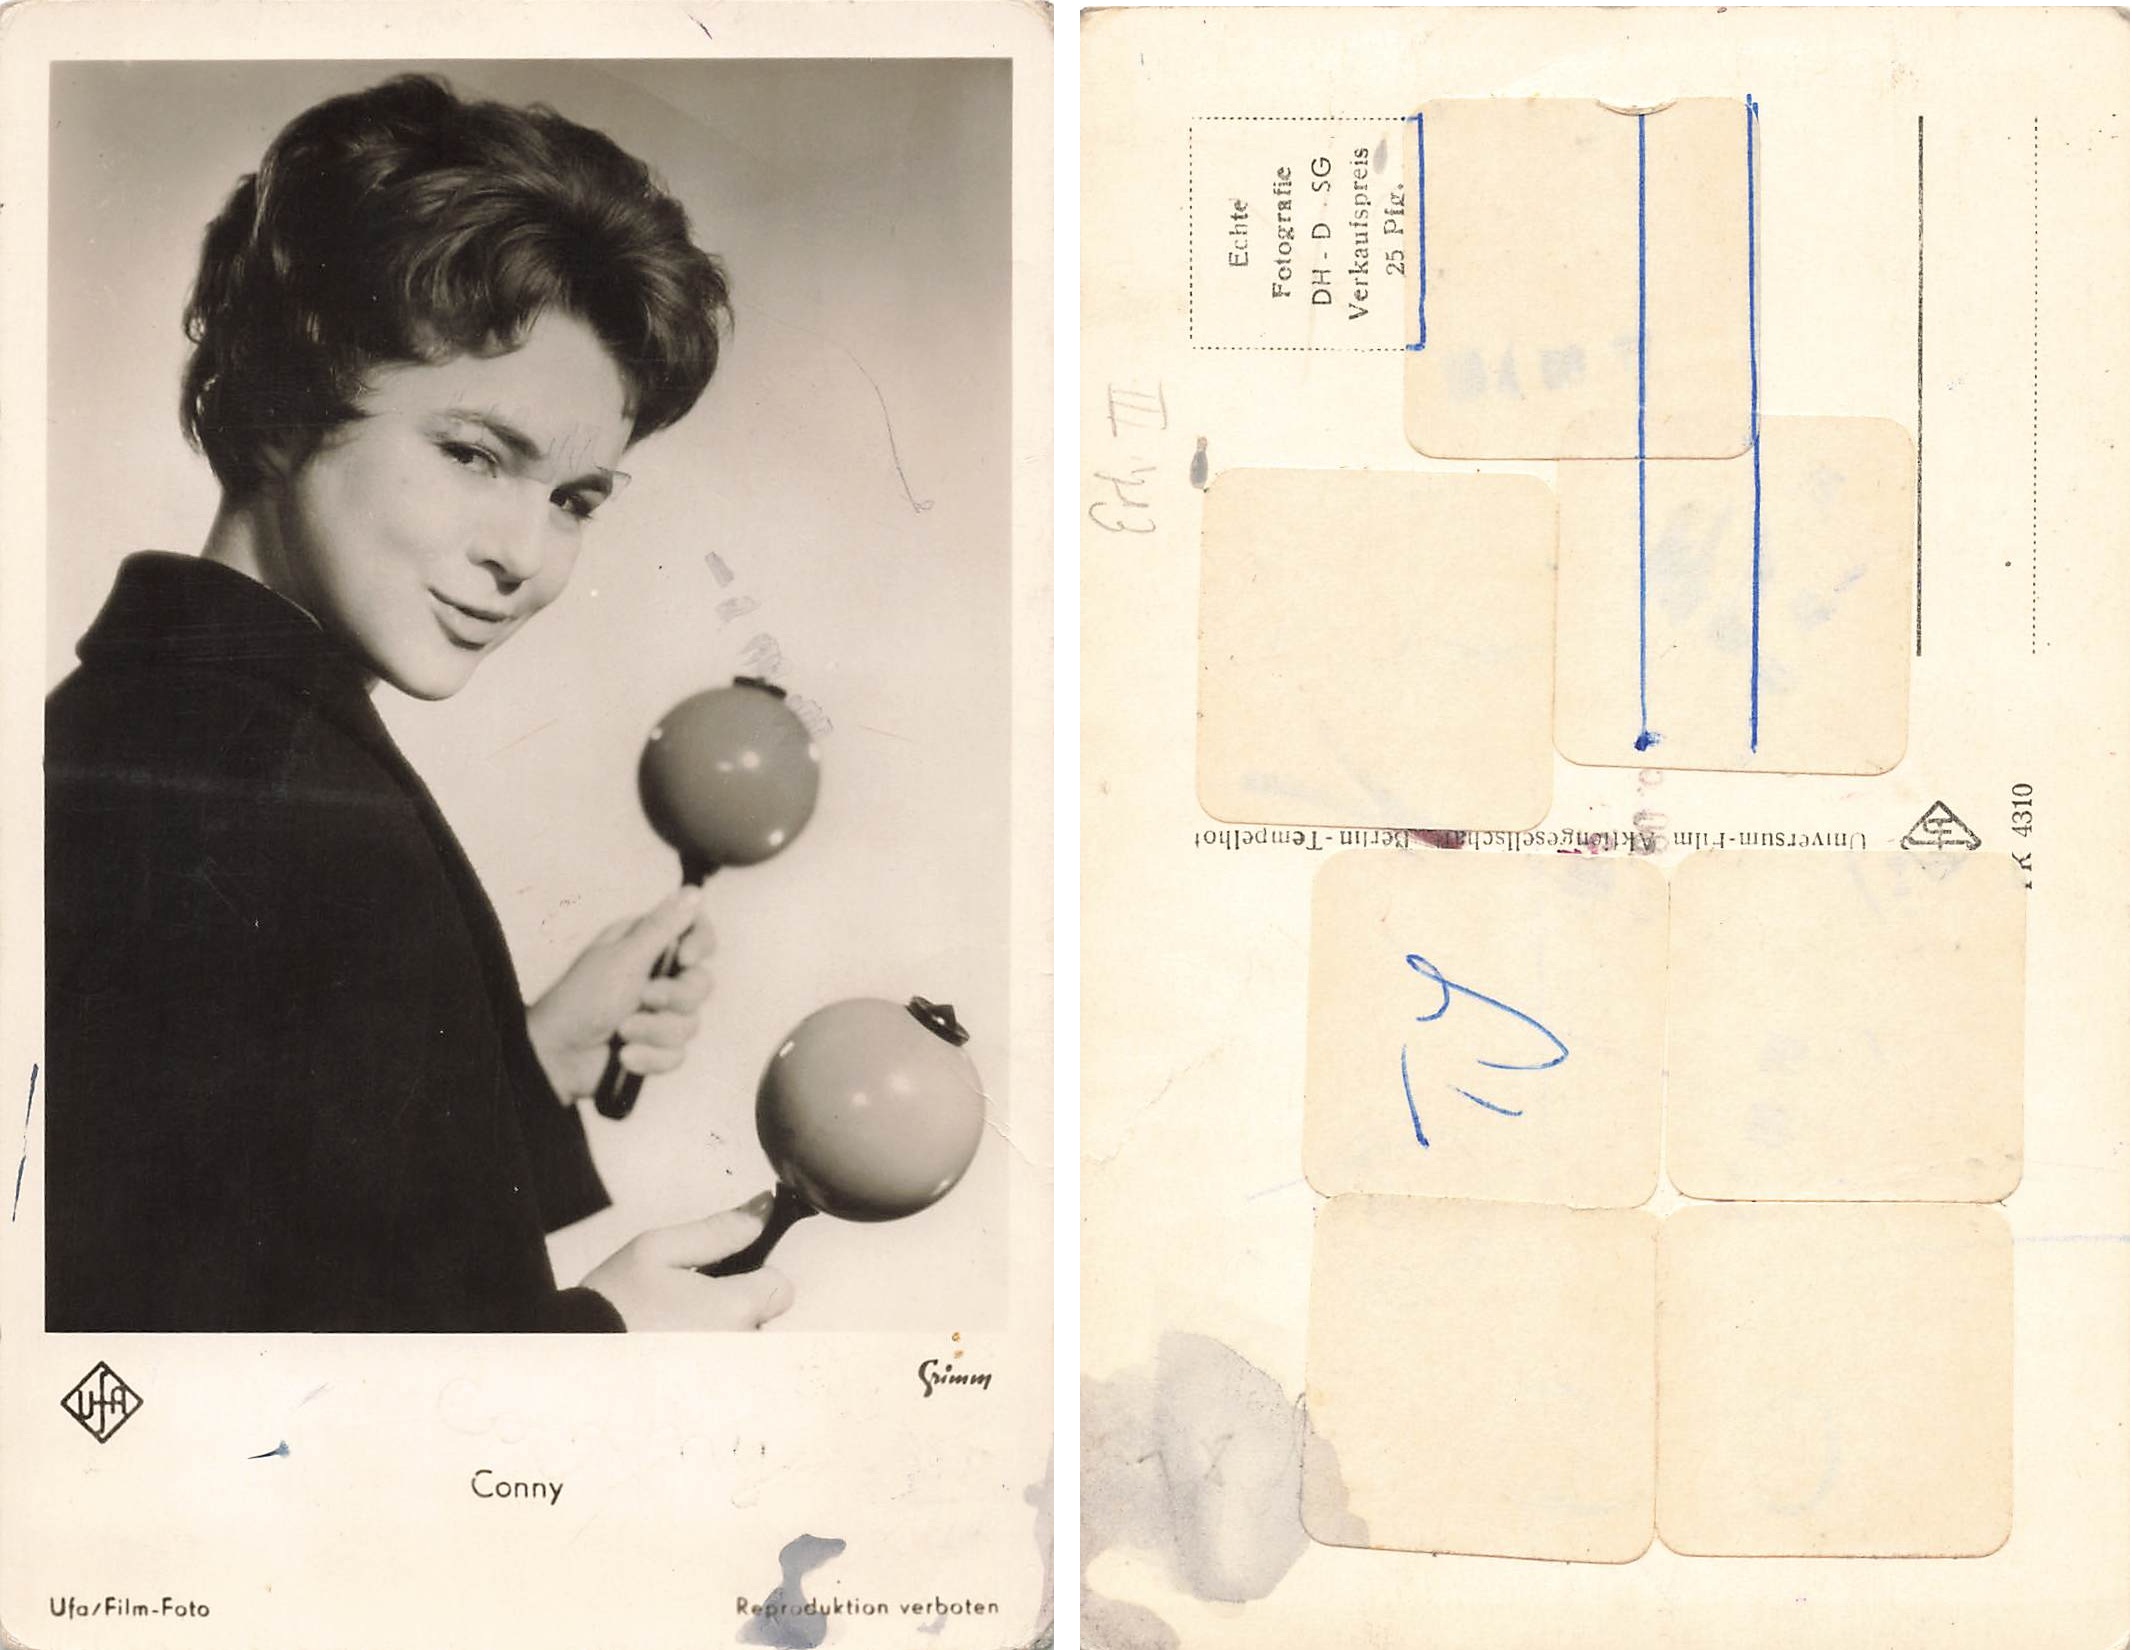 UfA
Grimm
Conny
Ufa/Film-Foto
Reproduktion verboten
Echte
Fotografie
DH - D SG
Verkaufspreis
25 Pfg.
Universum-Film Aktiengesellschaft Berlin-Tempelhof
4310